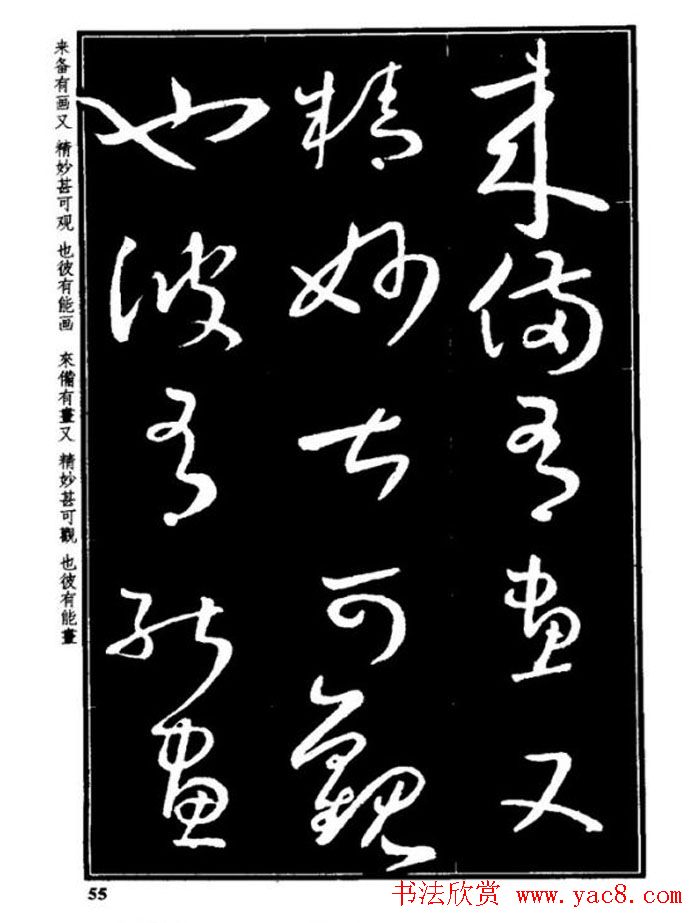 来備有畫又
精妙甚可觀
也彼有能畫
来备有画又 精妙甚可观 也彼有能画 來備有畫又 精妙甚可觀 也彼有能畫
55
书法欣赏 www.yac8.com